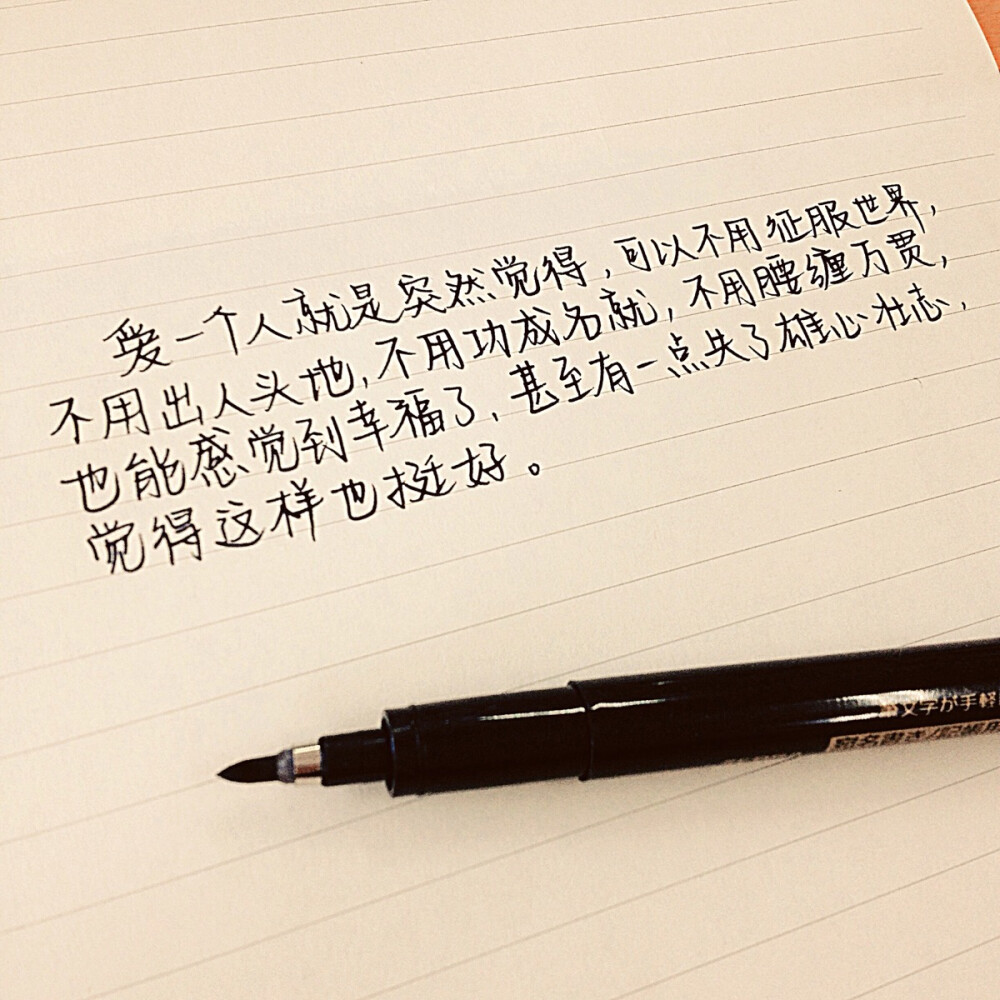 爱一个人就是突然觉得,可以不用征服世界,
不用出人头地,不用功成名就,不用腰缠万贯,
也能感觉到幸福了,甚至有一点失了雄心壮志,
觉得这样也挺好。
筆文字が手軽
宛名書き/記帳用